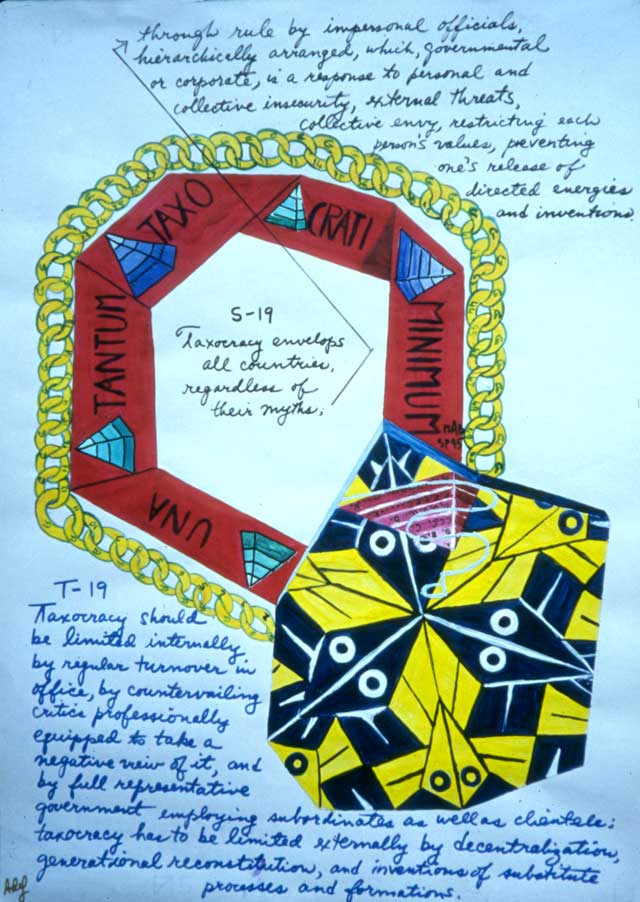 through rule by impersonal officials,
hierarchically arranged, which, governmental
or corporate, is a response to personal and
collective insecurity, external threats,
collective envy, restricting each
person's values, preventing
one's release of
directed energies
and inventions.
TAXO
CRATI
MINIMUM
TANTUM
UNA
S-19
Taxocracy envelops
all countries,
regardless of
their myths;
SP95
T-19
Taxocracy should
be limited internally
by regular turnover in
office, by countervailing
critics professionally
equipped to take a
negative view of it, and
by full representative
government employing subordinates as well as clientele;
taxocracy has to be limited externally by decentralization,
generational reconstitution, and inventions of substitute
processes and formations.